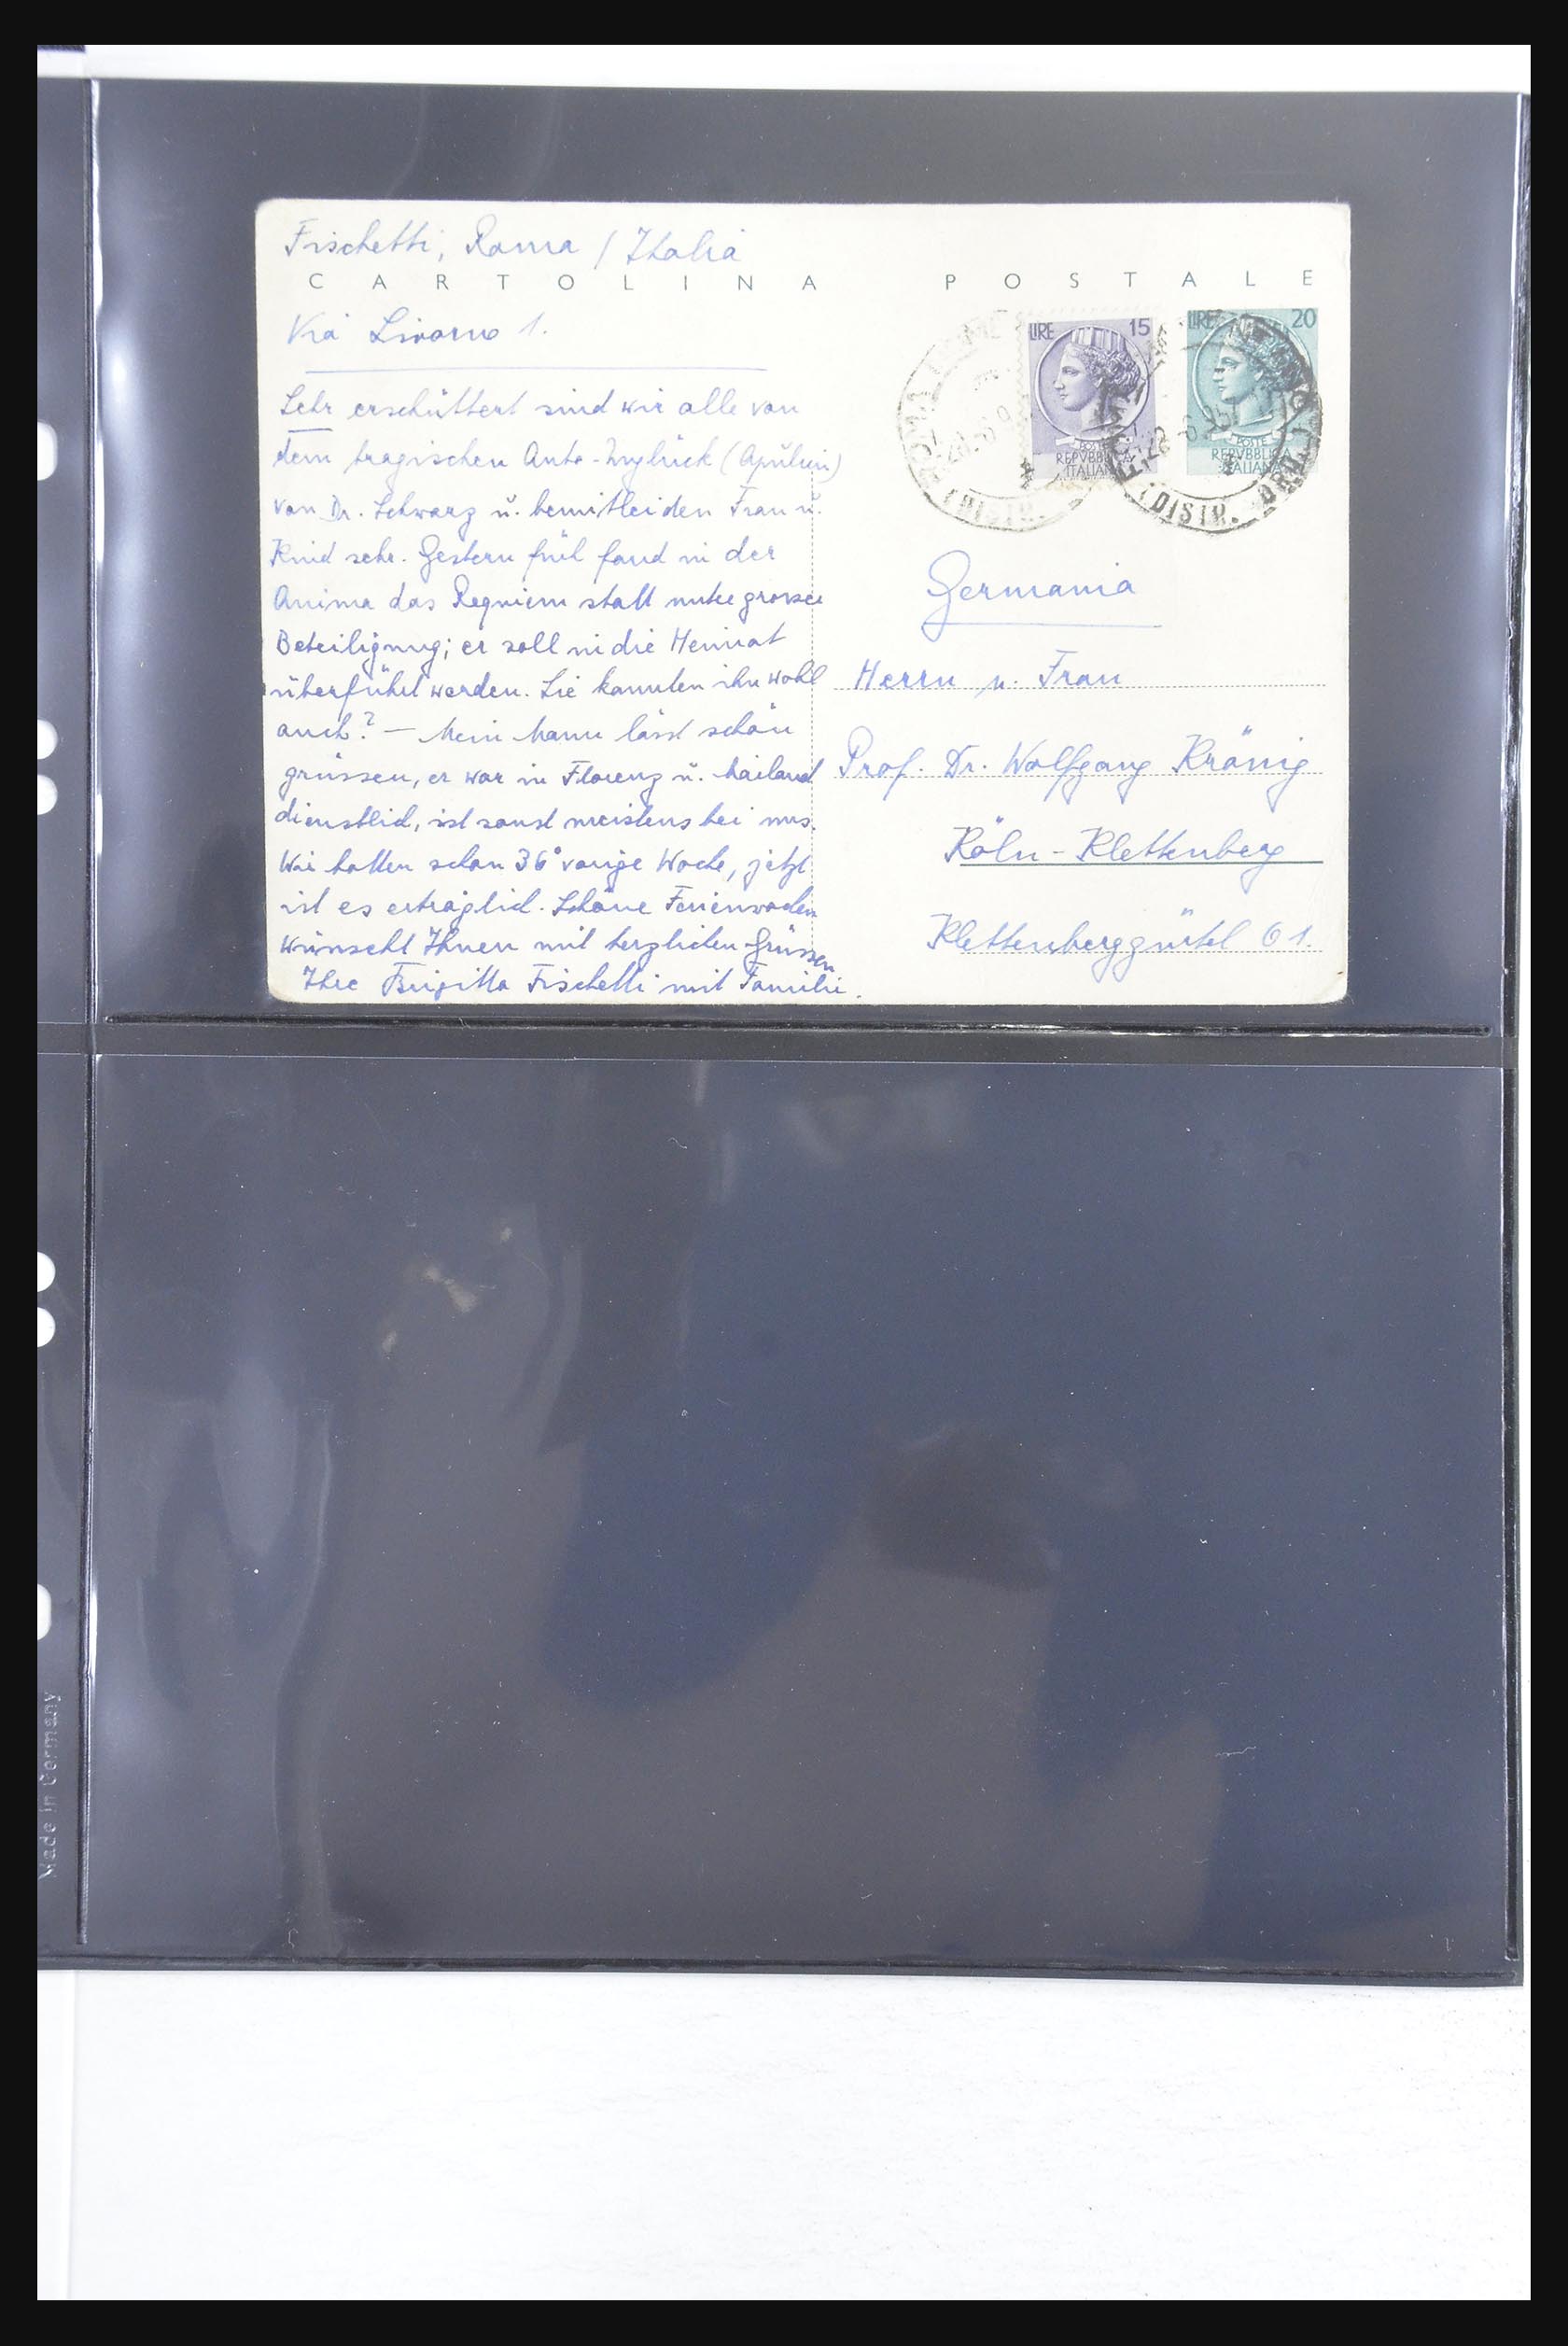 Fischetti, Roma / Italia
CARTOLINA POSTALE
Via Livorno 1.
LIRE 15
POSTE
REPVBBLICA
ITALIANA
LIRE 20
POSTE
REPVBBLICA
ITALIANA
Sehr erschüttert sind wir alle von
dem tragischen Auto-Unglück (Apulien)
von Dr. Schwarz u. bemitleiden Frau u.
Kind sehr. Gestern früh fand in der
Anima das Requiem statt unter grosser
Beteiligung; er soll in die Heimat
überführt werden. Sie kannten ihn wohl
auch? – Mein Mann lässt schön
grüssen, er war in Florenz u. Mailand
dienstlich, ist sonst meistens bei uns.
Wir hatten schon 36° vorige Woche, jetzt
ist es erträglich. Schöne Ferienwochen
wünscht Ihnen mit herzlichen Grüssen
Ihre Brigitta Fischetti mit Familie.
Germania
Herrn u. Frau
Prof. Dr. Wolfgang Krönig
Köln-Klettenberg
Klettenberggürtel 61.
Made in Germany